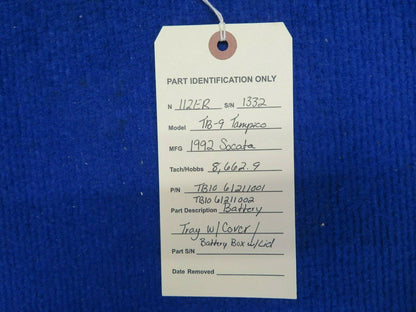 PART IDENTIFICATION ONLY
N 112ER S/N 1332
Model TB-9 Tampico
MFG 1992 Socata
Tach/Hobbs 8,662.9
P/N TB10 61211001
TB10 61211002
Part Description Battery
Tray w/ Cover /
Battery Box w/ Lid
Part S/N
Date Removed